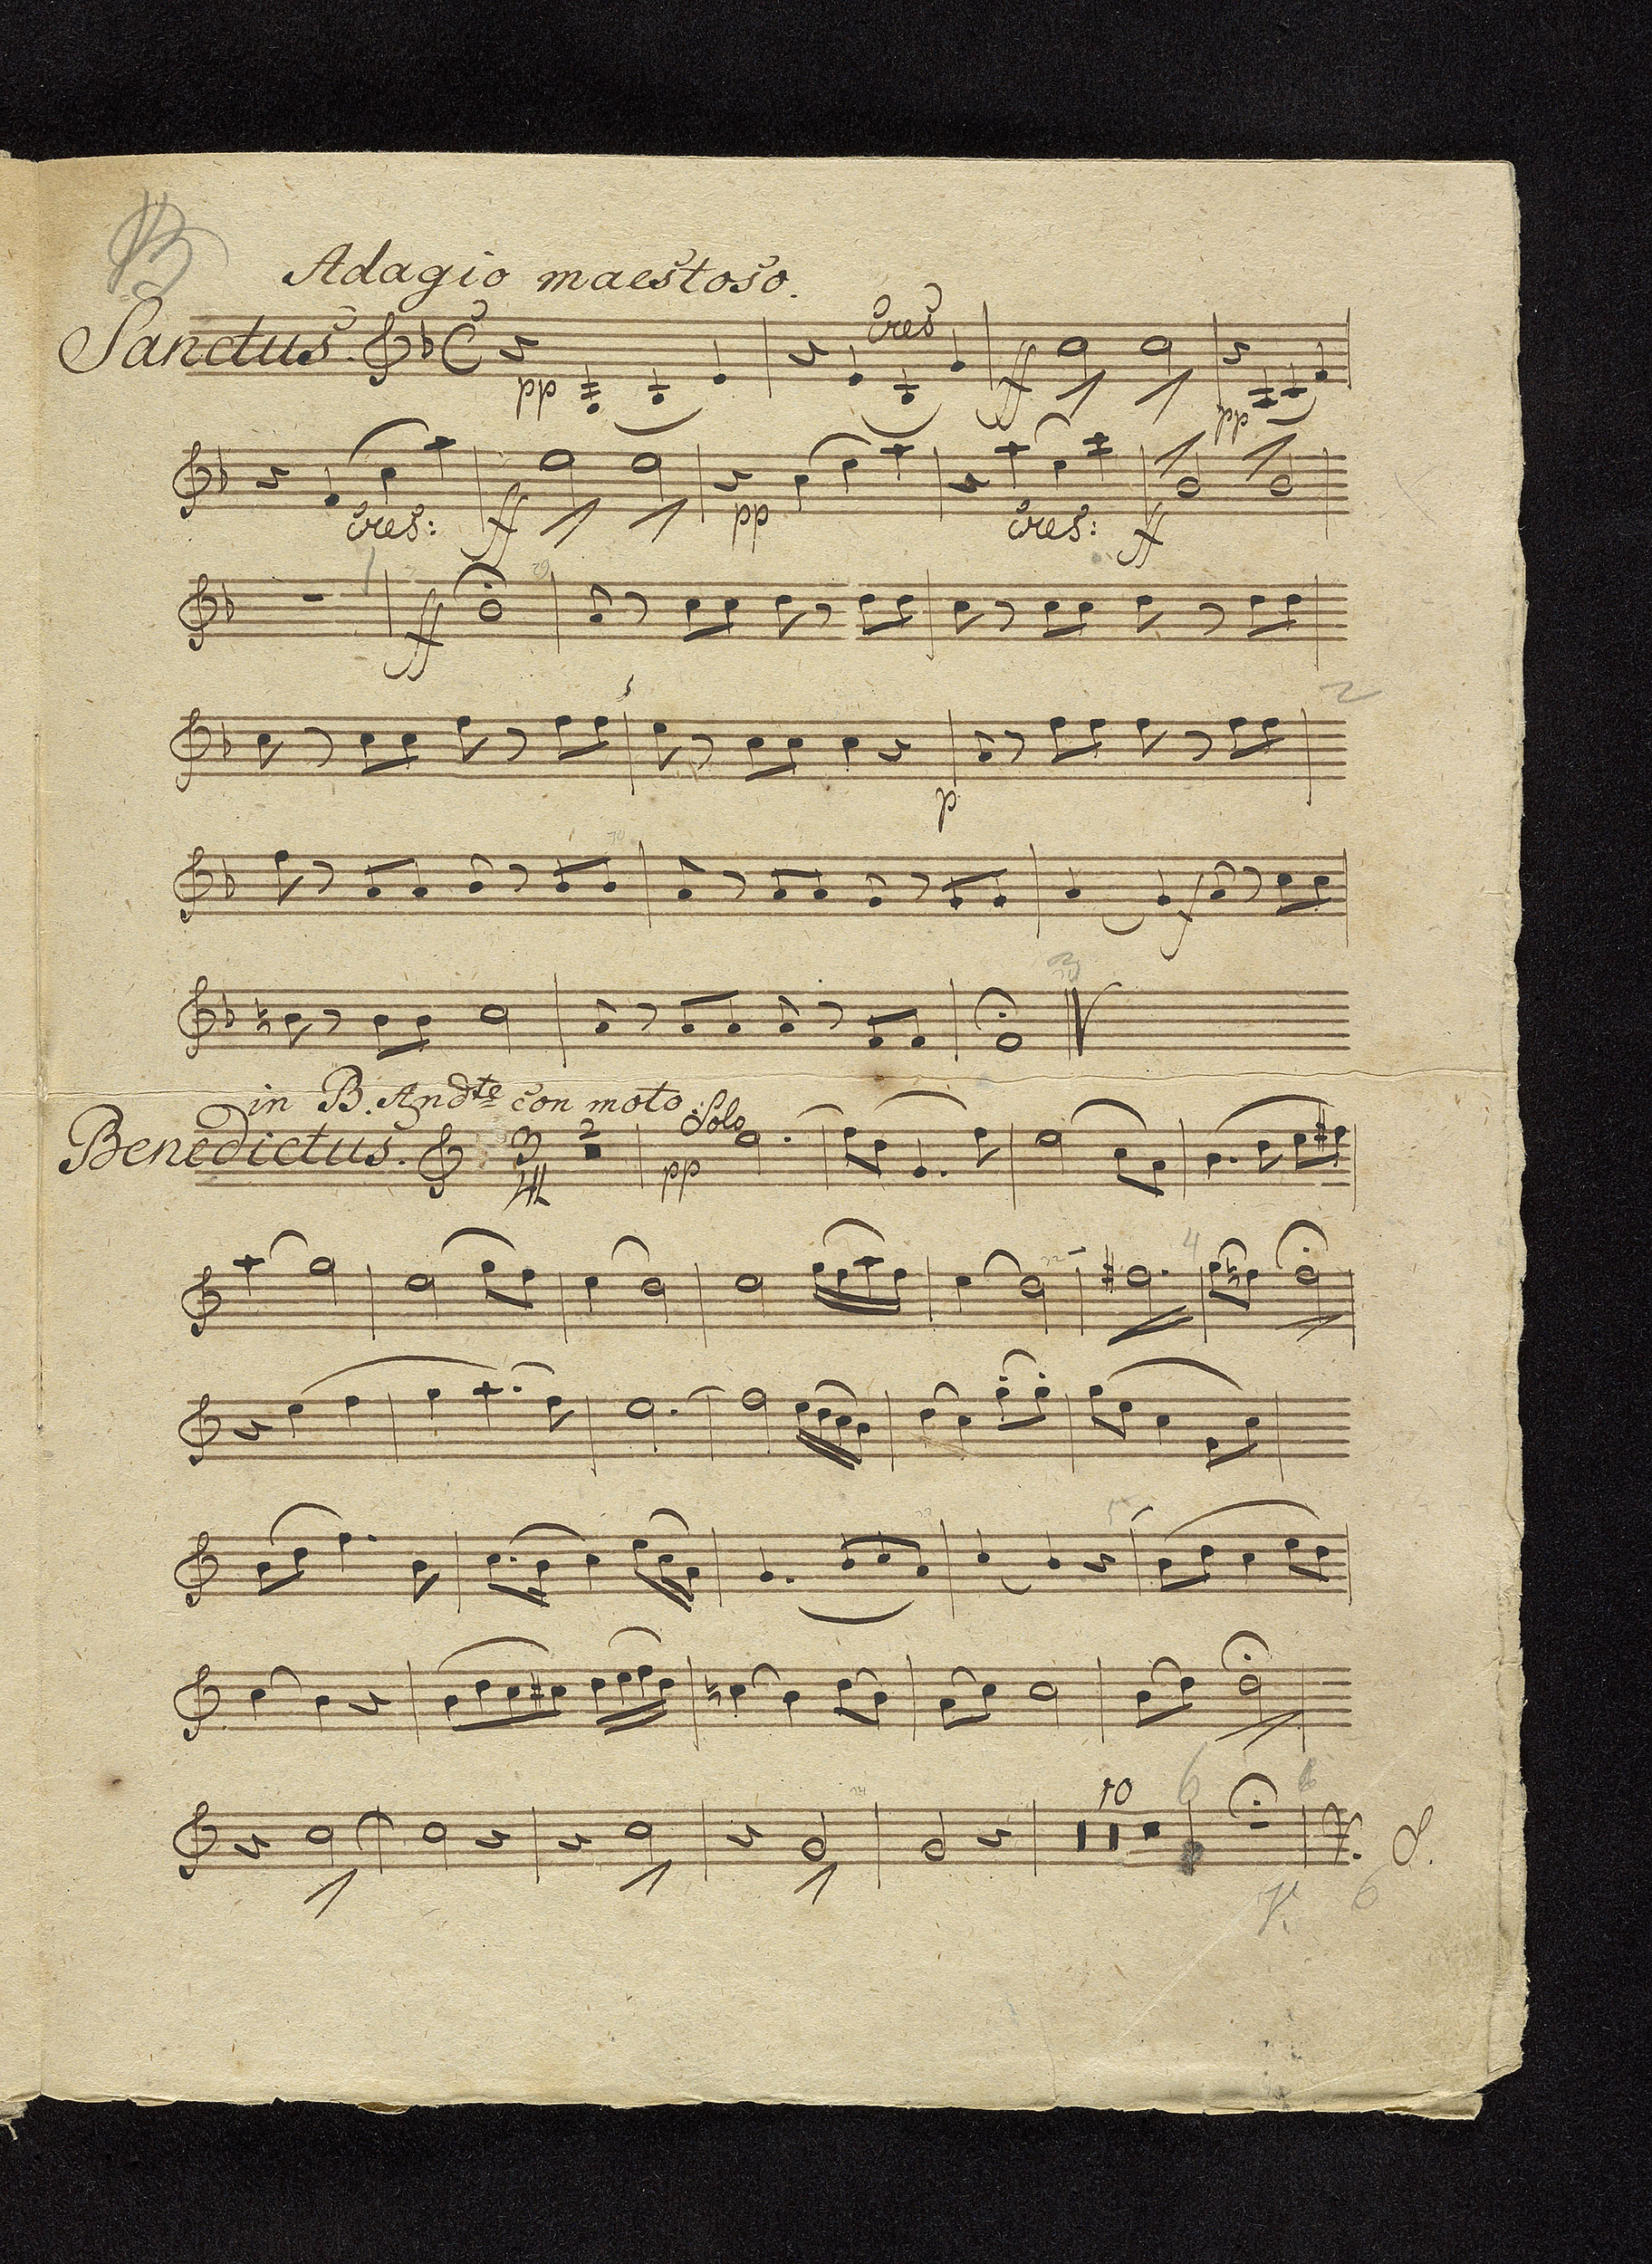 B
Adagio maestoso.
Sanctus.
pp cres ff pp
cres: ff pp cres: ff
ff
2
p
f
3
in B. Andte con moto
Benedictus. 3 4 2 pp Solo
4
10 6
V. S.
6